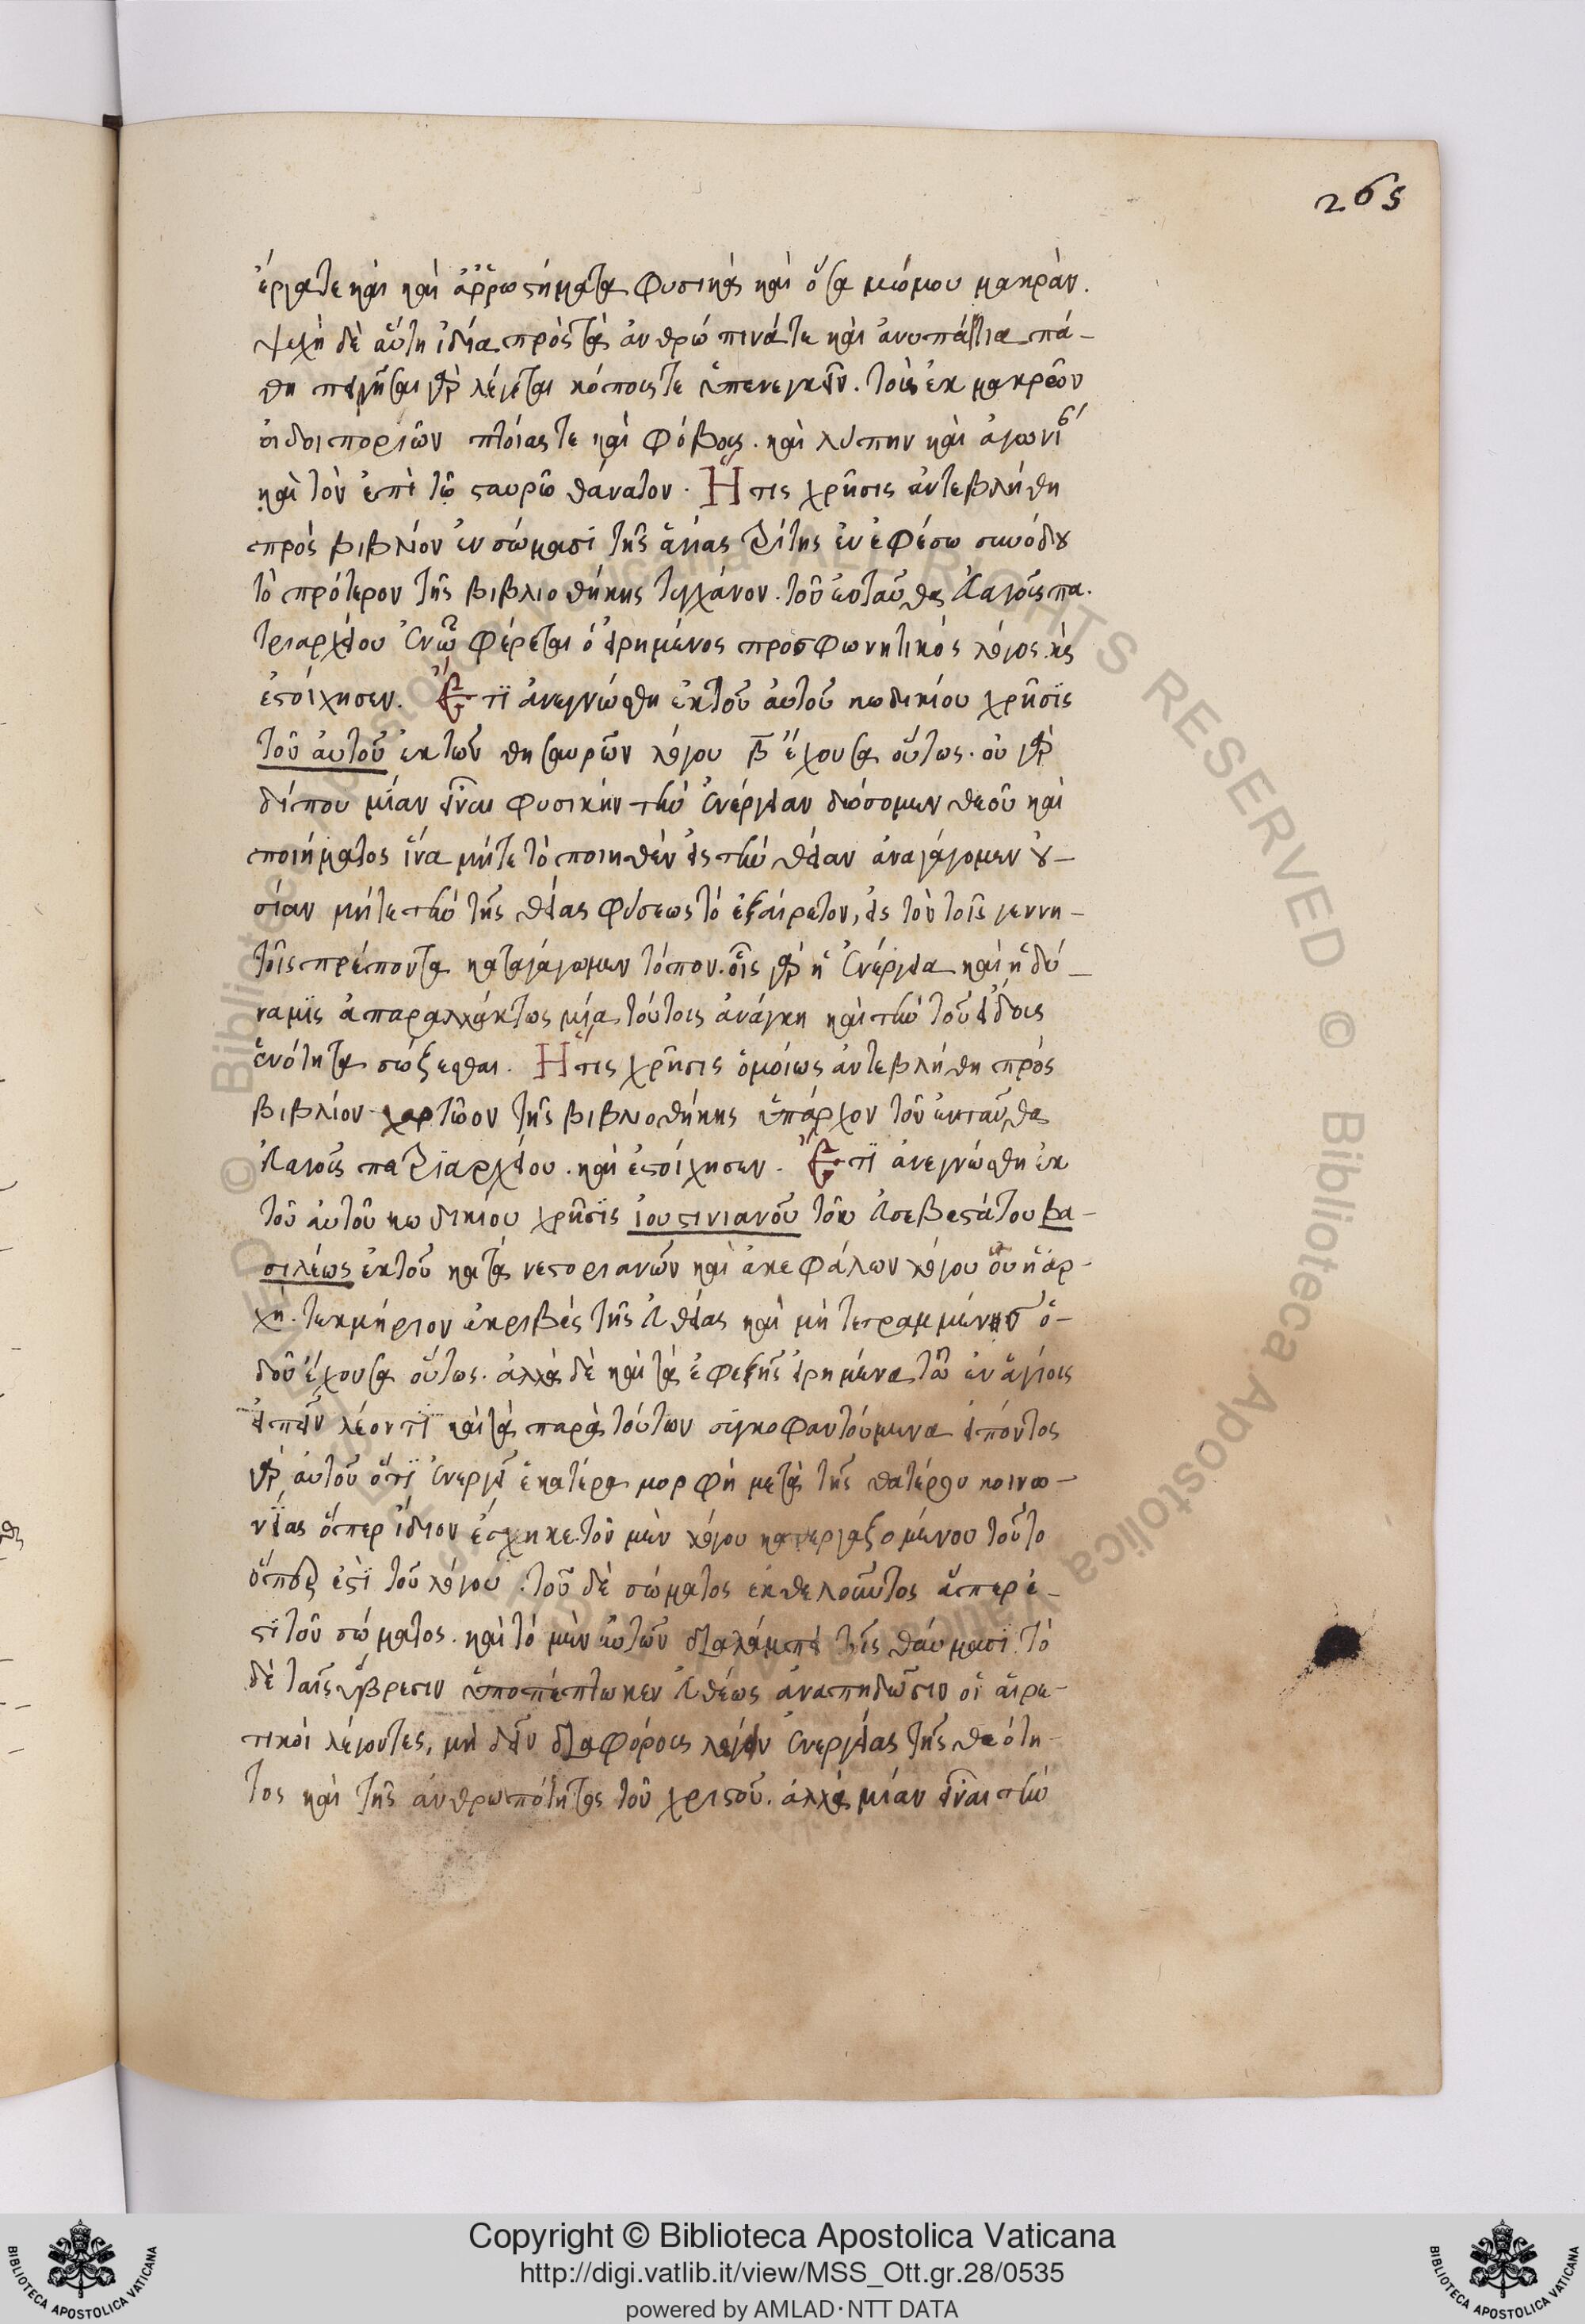 265
ἔργα τε καὶ καὶ ἀῤῥωστήματα φυσικὰ καὶ ὅσα μώμου μακράν.
ψυχὴ δὲ αὕτη ἰδία πρὸς τὰ ἀνθρώπινά τε καὶ ἀνυπαίτια πά-
θη πιγῆσαι γὰρ λέγεται κόπους τε ὑπενεγκεῖν. τοὺς ἐκ μακρῶν
ὁιδοιποριῶν πτοίας τε καὶ φόβους. καὶ λύπην καὶ ἀγωνί
καὶ τὸν ἐπὶ τῶ σταυρῶ θάνατον. Ἥτις χρῆσις ἀντεβλήθη
πρὸς βιβλίον ἐν σώμασι τῆς ἁγίας τρίτης ἐν ἐφέσω συνόδου
τὸ πρότερον τῆς βιβλιοθήκης τυγχάνον. τοῦ ἐνταῦθα εὐαγοῦς πα.
τριαρχείου ἐν ὧ φέρεται ὁ εἰρημένος προσφωνητικὸς λόγος καὶ
ἐστοίχησεν. Ἔτι ἀνεγνώσθη ἐκ τοῦ αὐτοῦ κωδικίου χρῆσις
τοῦ αὐτοῦ ἐκ τῶν θησαυρῶν λόγου β ἔχουσα οὕτως. οὐ γὰρ
δίπου μίαν εἶναι φυσικὴν τὴν ἐνέργειαν δώσομεν θεοῦ καὶ
ποιήματος ἵνα μήτε τὸ ποιηθὲν εἰς τὴν θείαν ἀναγάγομεν οὐ-
σίαν μήτε τὴν τῆς θείας φύσεως τὸ ἐξαίρετον, εἰς τὸν τοῖς γεννη-
τοῖς πρέποντα καταγάγωμεν τόπον. οἷς γὰρ ἡ ἐνέργεια καὶ ἡ δύ-
ναμις ἀπαραλλάκτως μία τούτοις ἀνάγκη καὶ τὴν τοῦ εἴδους
ἑνότητα σώζεσθαι. Ἥτις χρῆσις ὁμοίως ἀντεβλήθη πρὸς
βιβλίον χαρτῶον τῆς βιβλιοθήκης ὑπάρχον τοῦ ἐνταῦθα
εὐαγοῦς πατριαρχείου. καὶ ἐστοίχησεν. Ἔτι ἀνεγνώσθη ἐκ
τοῦ αὐτοῦ κωδικίου χρῆσις ἰουστινιανοῦ τοῦ εὐσεβεστάτου βα-
σιλέως ἐκ τοῦ κατὰ νεστοριανῶν καὶ ἀκεφάλων λόγου οὗ ἡ ἀρ-
χή. τεκμήριον ἀκριβὲς τῆς εὐθείας καὶ μὴ τετραμμένης ὁ-
δοῦ ἔχουσα οὕτως. ἀλλὰ δὲ καὶ τὰ ἐφεξῆς εἰρημένα τῶ ἐν ἁγίοις
εἰπεῖν λέοντι καὶ τὰ παρὰ τούτων συκοφαντούμενα εἰπόντος
γὰρ αὐτοῦ ὅτι ἐνεργεῖ ἑκατέρα μορφὴ μετὰ τῆς θατέρου κοινω-
νίας ὅπερ ἴδιον ἔσχηκε. τοῦ μὲν λόγου κατεργαζομένου τοῦτο
ὅπερ ἐστὶ τοῦ λόγου. τοῦ δὲ σώματος ἐκτελοῦντος ἅπερ ἐ-
στὶ τοῦ σώματος. καὶ τὸ μὲν αὐτῶν διαλάμπει τοῖς θαύμασι τὸ
δὲ ταῖς ὕβρεσιν ὑποπέπτωκεν εὐθέως ἀναπηδῶσιν οἱ αἱρε-
τικοὶ λέγοντες, μὴ δεῖν διαφόρους λέγειν ἐνεργείας τῆς θεότη-
τος καὶ τῆς ἀνθρωπότητος τοῦ χριστοῦ. ἀλλὰ μίαν εἶναι τὴν
Copyright © Biblioteca Apostolica Vaticana
http://digi.vatlib.it/view/MSS_Ott.gr.28/0535
powered by AMLAD·NTT DATA